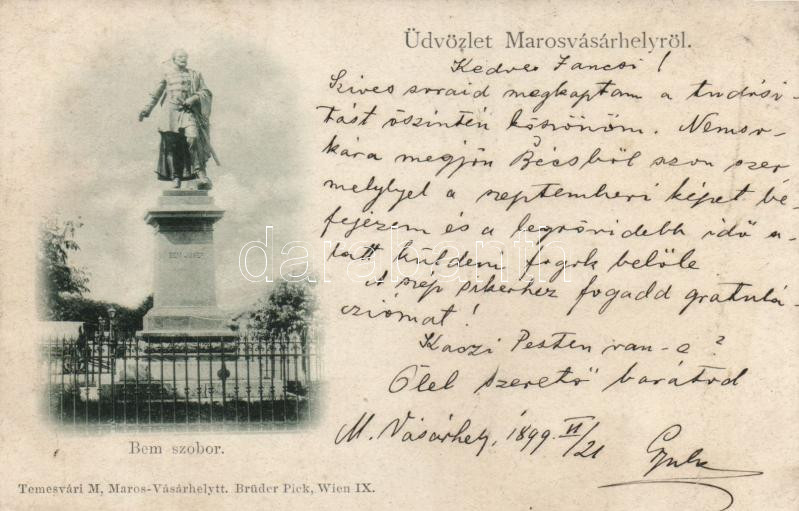 Üdvözlet Marosvásárhelyről.
Kedves Jancsi!
Szives soraid megkaptam a tudósi-
tást őszintén köszönöm. Nemso-
kára megjön Bécsből azon szer
melylyel a szeptemberi képet be-
fejezem és a legrövidebb idő a-
latt küldem fogok belőle
A szép sikerhez fogadd gratulá-
cziómat!
Kaszi Pesten van-e?
Ölel szerető barátod
M. Vásárhely, 1899 VI/21
Gyula
BEM JÓZSEF
darabanth
Bem szobor.
Temesvári M, Maros-Vásárhelytt. Brüder Pick, Wien IX.